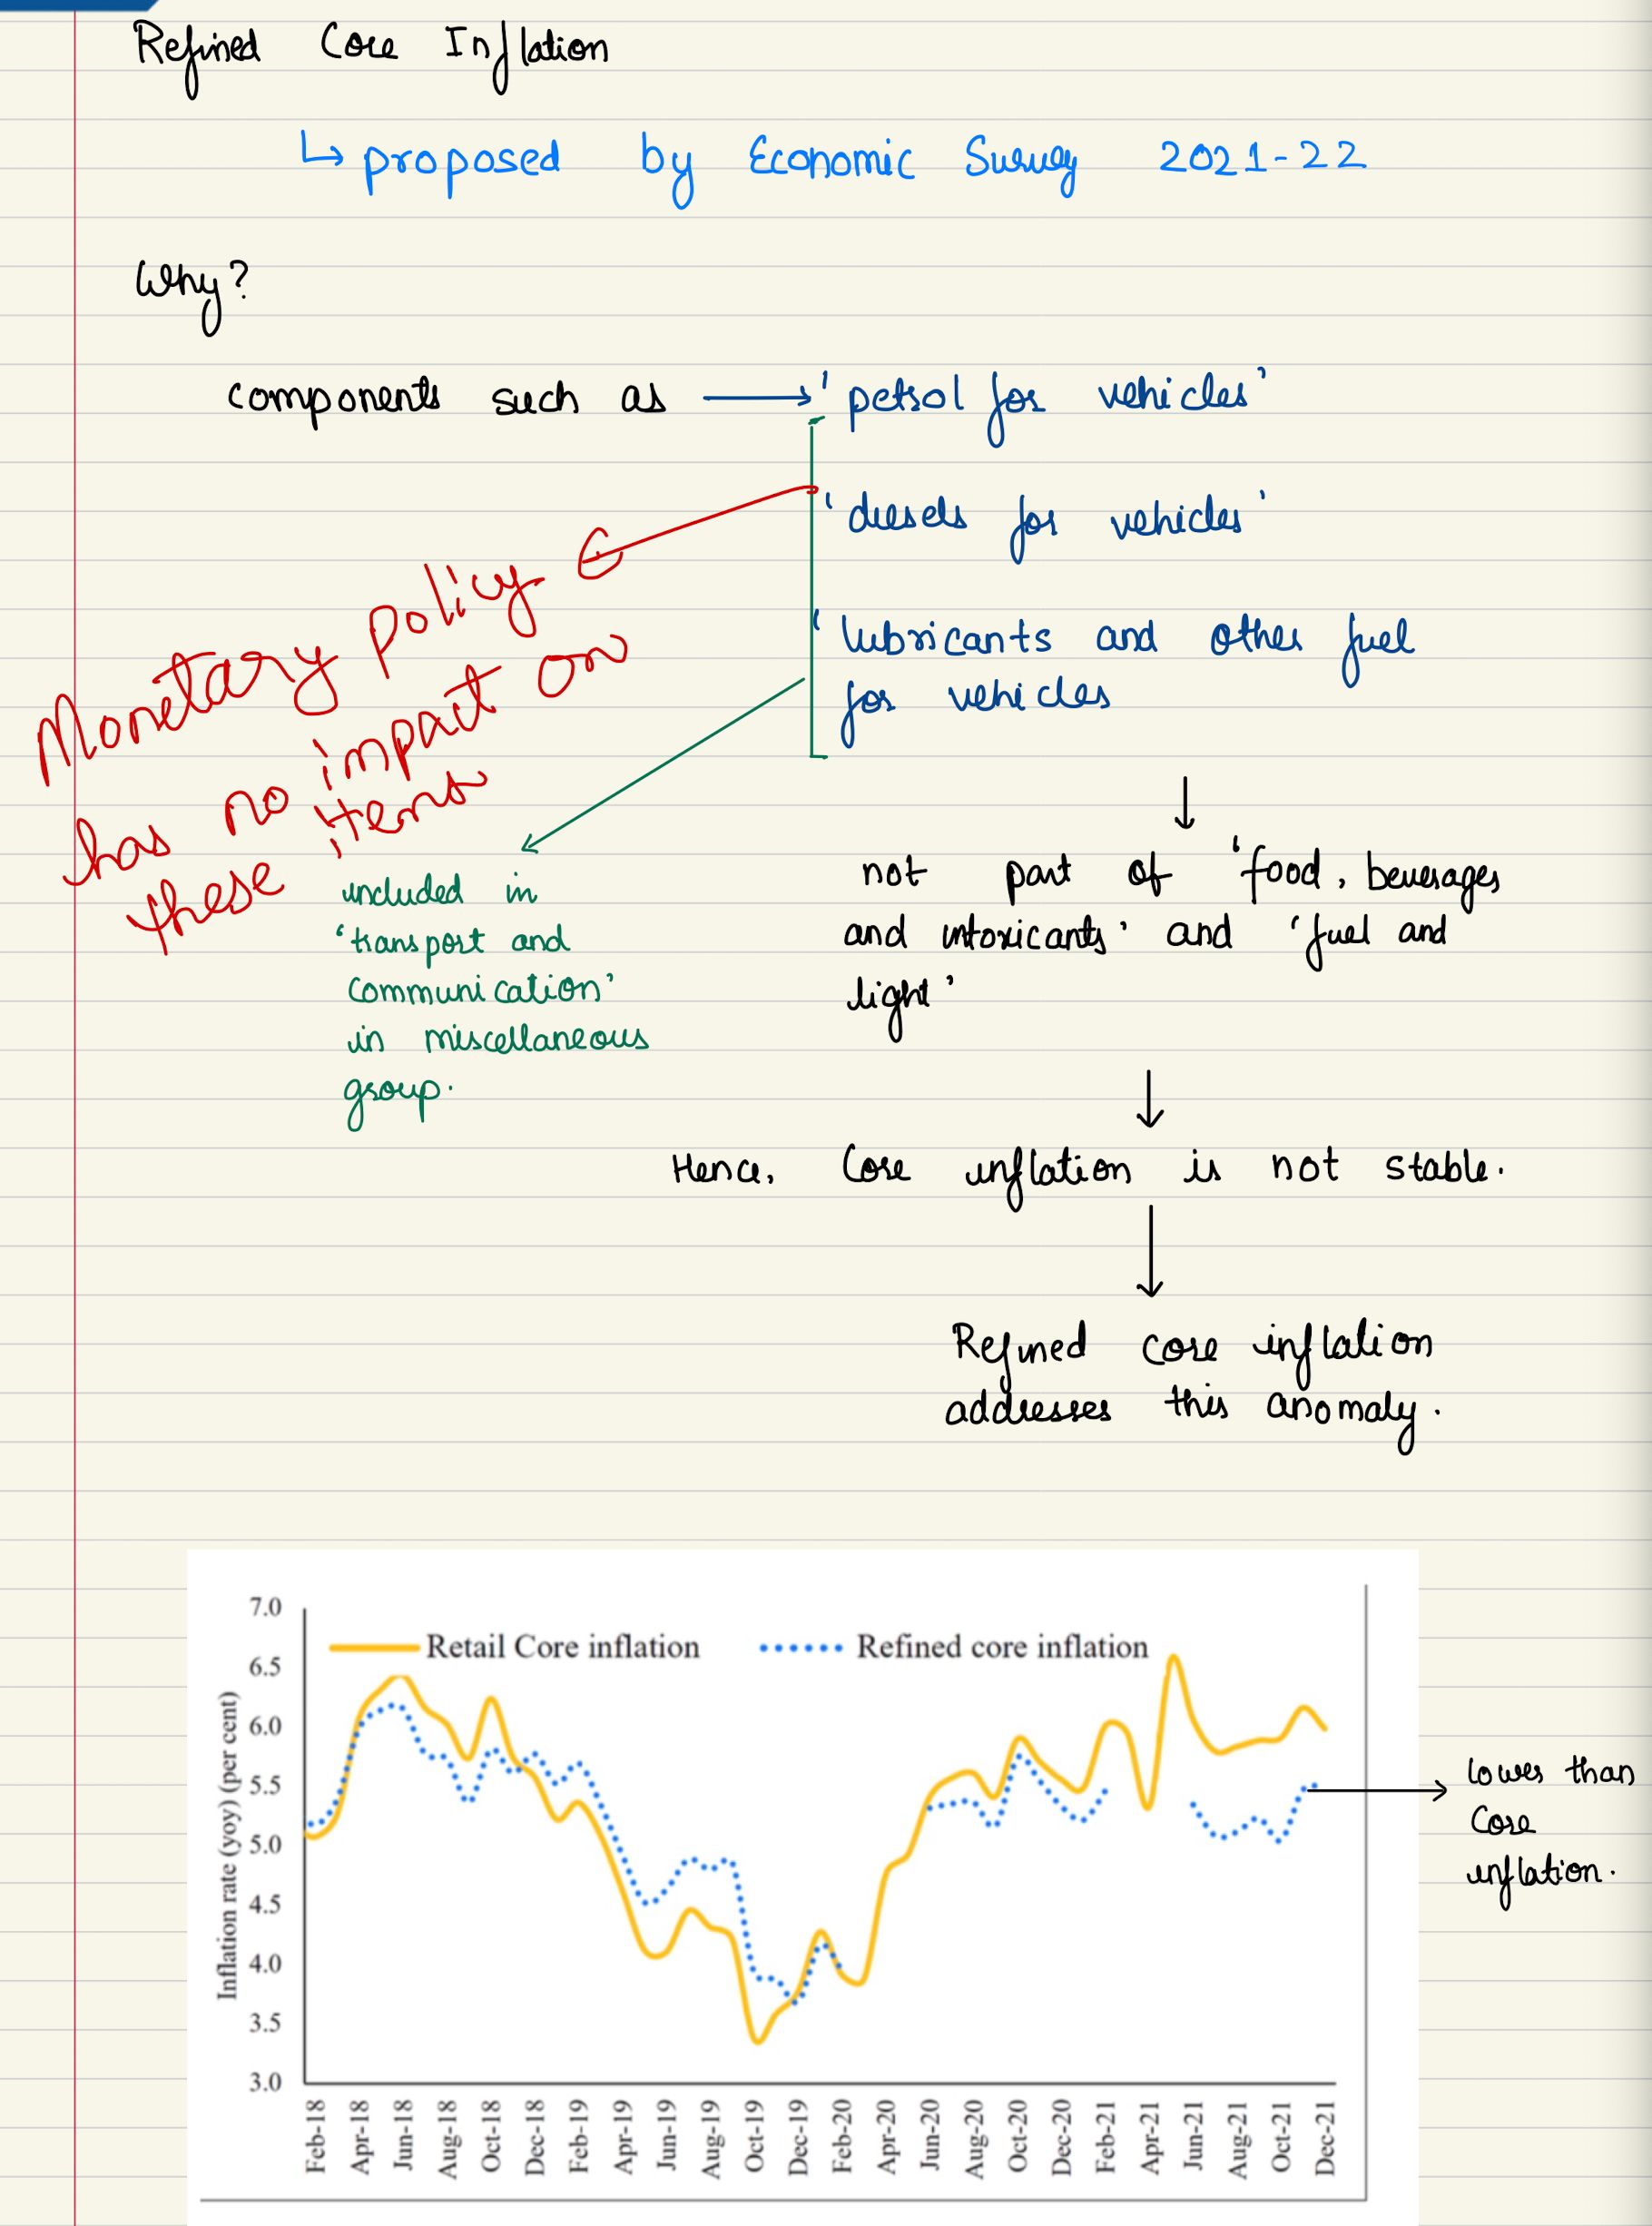 Refined Core Inflation
↳ proposed by Economic Survey 2021-22
Why?
components such as → 'petrol for vehicles'
'diesels for vehicles'
'lubricants and other fuel
for vehicles
Monetary policy
has no impact on
these items
included in
'transport and
communication'
in miscellaneous
group.
↓
not part of 'food, beverages
and intoxicants' and 'fuel and
light'
↓
Hence, Core inflation is not stable.
↓
Refined core inflation
addresses this anomaly.
Retail Core inflation
Refined core inflation
Inflation rate (yoy) (per cent)
7.0
6.5
6.0
5.5
5.0
4.5
4.0
3.5
3.0
Feb-18
Apr-18
Jun-18
Aug-18
Oct-18
Dec-18
Feb-19
Apr-19
Jun-19
Aug-19
Oct-19
Dec-19
Feb-20
Apr-20
Jun-20
Aug-20
Oct-20
Dec-20
Feb-21
Apr-21
Jun-21
Aug-21
Oct-21
Dec-21
lower than
Core
inflation.